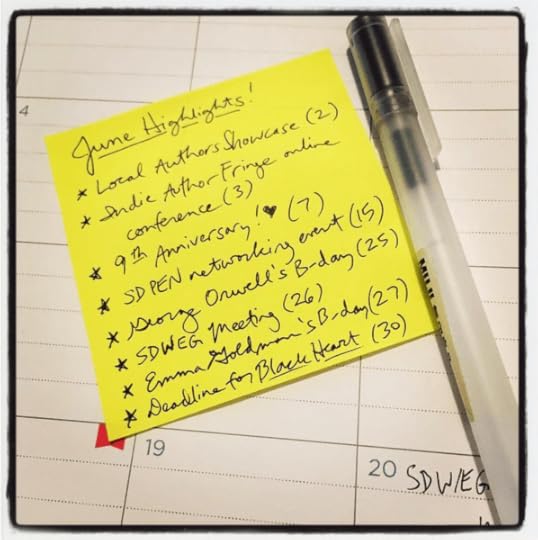 4
June Highlights!
* Local Authors Showcase (2)
* Indie Author Fringe online
conference (3)
* 9th Anniversary! ♥ (7)
* SDPEN networking event (15)
* George Orwell's B-day (25)
* SDWEG meeting (26)
* Emma Goldman's B-day (27)
* Deadline for Black Heart (30)
MUJI
19
20 SDW/EG